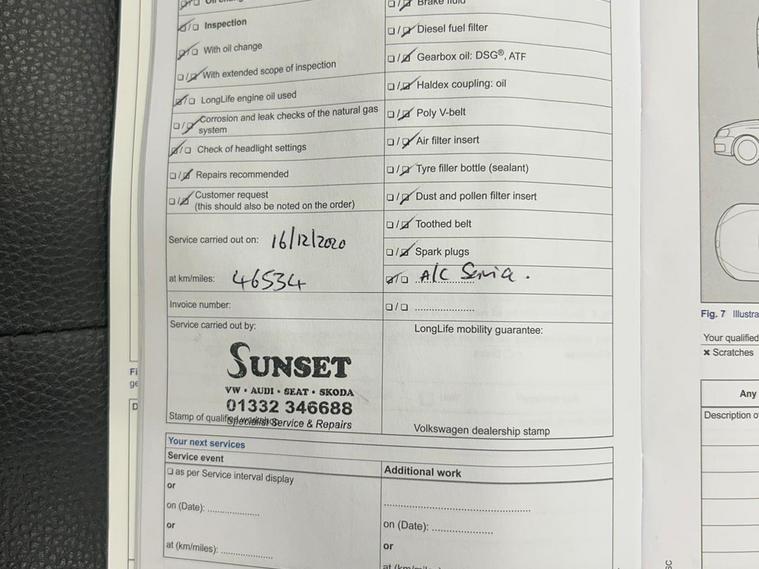 Brake fluid
☑/☐ Inspection
☐/☑ Diesel fuel filter
☑/☐ With oil change
☐/☑ Gearbox oil: DSG®, ATF
☐/☑ With extended scope of inspection
☐/☑ Haldex coupling: oil
☑/☐ LongLife engine oil used
☐/☑ Poly V-belt
☐/☑ Corrosion and leak checks of the natural gas
system
☐/☑ Air filter insert
☑/☐ Check of headlight settings
☐/☑ Tyre filler bottle (sealant)
☐/☑ Repairs recommended
☐/☑ Dust and pollen filter insert
☐/☑ Customer request
(this should also be noted on the order)
☐/☑ Toothed belt
Service carried out on: 16/12/2020
☐/☑ Spark plugs
at km/miles: 46534
☑/☐ A/C Service.
Invoice number:
☐/☐ ....................
Service carried out by:
LongLife mobility guarantee:
SUNSET
VW • AUDI • SEAT • SKODA
01332 346688
Specialist Service & Repairs
Stamp of qualified
Volkswagen dealership stamp
Your next services
Service event
Additional work
☐ as per Service interval display
or
on (Date): ..................
on (Date): .....................
or
or
at (km/miles): ..................
Fig. 7 Illustra
Your qualified
✖ Scratches
Any
Description o